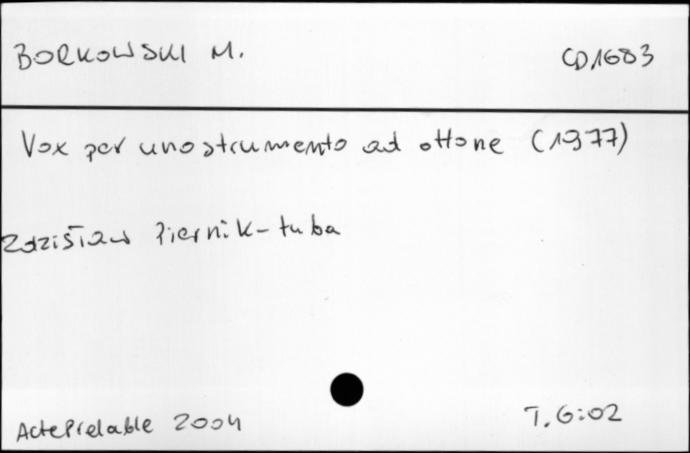 BORKOWSKI M. CD1683
Vox per uno strumento ad ottone (1977)
Zdzisław Piernik - tuba
Acte Prelable 2004 T. 6:02